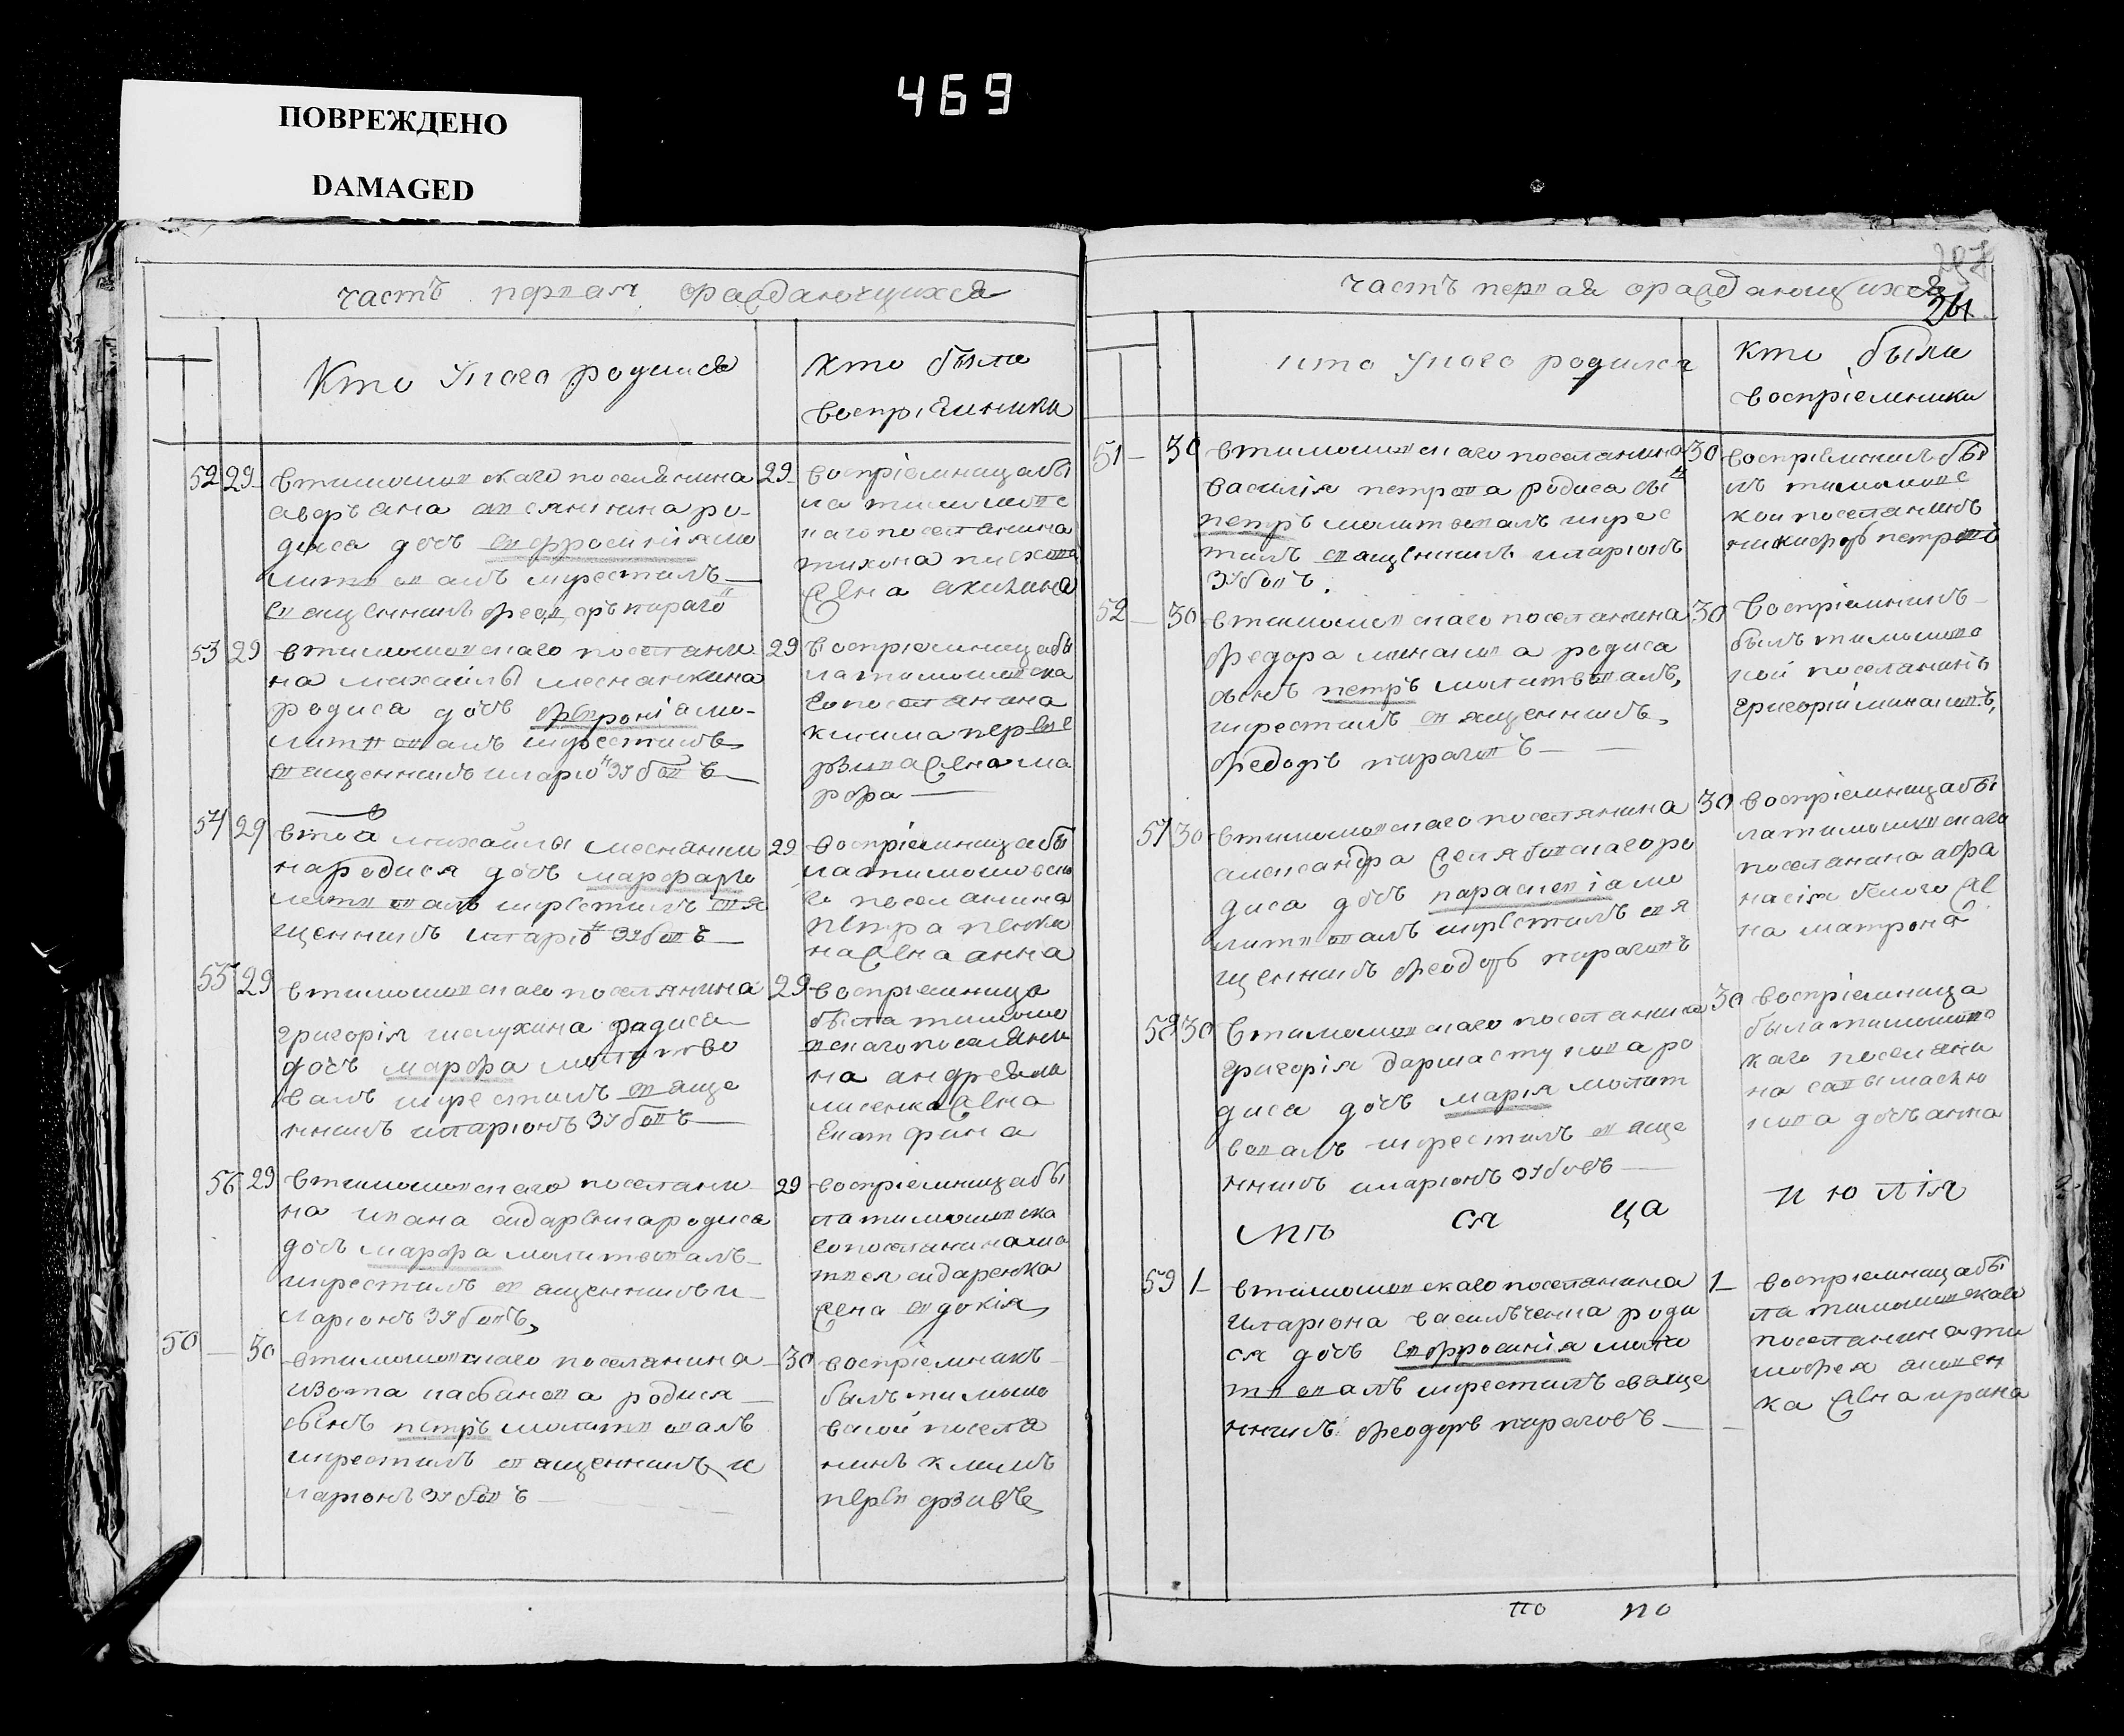 469
ПОВРЕЖДЕНО
DAMAGED
часть первая ораждающихся
Кто У кого родился
кто были
воспріемники
52 29 втимошовского поселянина
родиса дочь евфросинія мо
литвовалъ икрестилъ
священникъ феодоръ пирого
29 воспріемница бы
ла тимошовс
каго поселянина
тихона
дочь акилина
53 29 втимошовскаго поселяни
на михайлы меснянкина
родиса дочь февронія мо-
литвовалъ икрестилъ
священникъ иларіонъ зубовъ
29 воспріемница бы
ла тимошовска
го поселянина
клима перве
рзива дочна ма
рфа
54 29 втого михайлы меснянки
на родися дочь марфа мо
литвовалъ икрестилъ свя
щенникъ иларіонъ зубовъ
29 воспріемница бы
ла тимошовска
го поселянина
петра пенки
на жена анна
55 29 втимошовскаго поселянина
григорія шелухина радиса
дочь марфа молитво
валъ икрестилъ свяще
нникъ иларіонъ зубовъ
29 воспріемница
была тимошо
вскаго поселяни
на андрея ли
сенка жена
екатерина
56 29 втимошовскаго поселяни
на ивана сидаренка родиса
дочь марфа молитвовалъ
икрестилъ священникъ и
ларіонъ зубовъ
29 воспріемница бы
ла тимошовска
го поселянина ма
твея сидаренка
жена евдокія
50 30 втимошовскаго поселянина
изота касьанова родися
сынъ петръ молитвовалъ
икрестилъ священникъ и
ларіонъ зубовъ
30 воспріемникъ
былъ тимошо
вской поселя
нинъ климъ
первѣрзивъ
207
261
часть первая ораждающихся
кто У кого родился
кто были
воспріемники
51 30 втимошовскаго поселянина
василія петрова родиса сынъ
петръ молитвовалъ икрес
тилъ священникъ иларіонъ
зубовъ
30 воспріемникъ бы
лъ тимошовс
кой поселянинъ
никифоръ петровъ
52 30 втимошовскаго поселянина
федора минакова родиса
сынъ петръ молитвовалъ
икрестилъ священникъ
феодоръ пироговъ
30 воспріемникъ
былъ тимошовс
кой поселянинъ
григорій минаковъ
57 30 втимошовскаго поселянина
александра селябовскаго ро
диса дочь параскевіа мо
литвовалъ икрестилъ свя
щенникъ феодоръ пироговъ
30 воспріемница бы
ла тимошовскаго
поселянина афа
насія белого же
на матрона
58 30 втимошовскаго поселянина
григорія дармастукова ро
диса дочь марія молит
вовалъ икрестилъ свяще
нникъ иларіонъ зубовъ
30 воспріемница
была тимошовс
каго поселяни
на савы масею
кова дочь анна
мѣ ся ца июлія
59 1 втимошовскаго поселянина
иларіона василъченка роди
ся дочь евфросинія моли
твовалъ икрестилъ свяще
нникъ феодоръ пироговъ
1 воспріемница бы
ла тимошовскаго
поселянина ти
мофея
ка жена ирина
по по